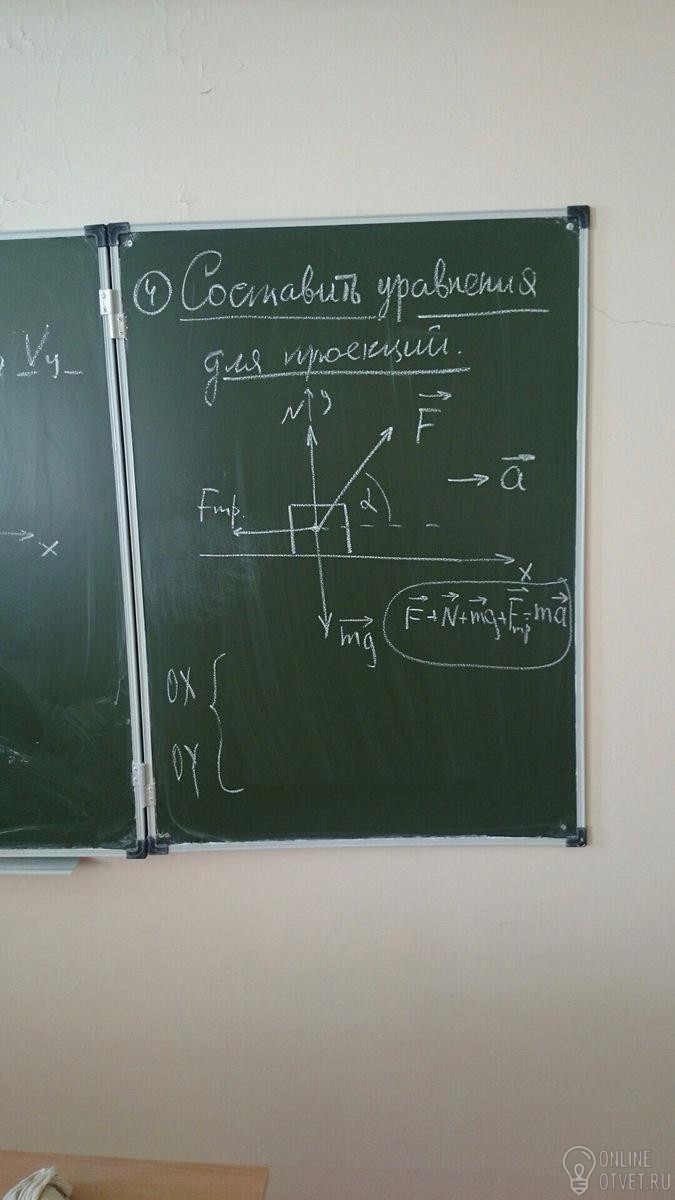 Vy_
x
④ Составить уравнения
для проекций.
N y
F
a
Fтр.
α
x
mg
F+N+mg+Fтр=ma
OX {
OY
ONLINE
OTVET.RU